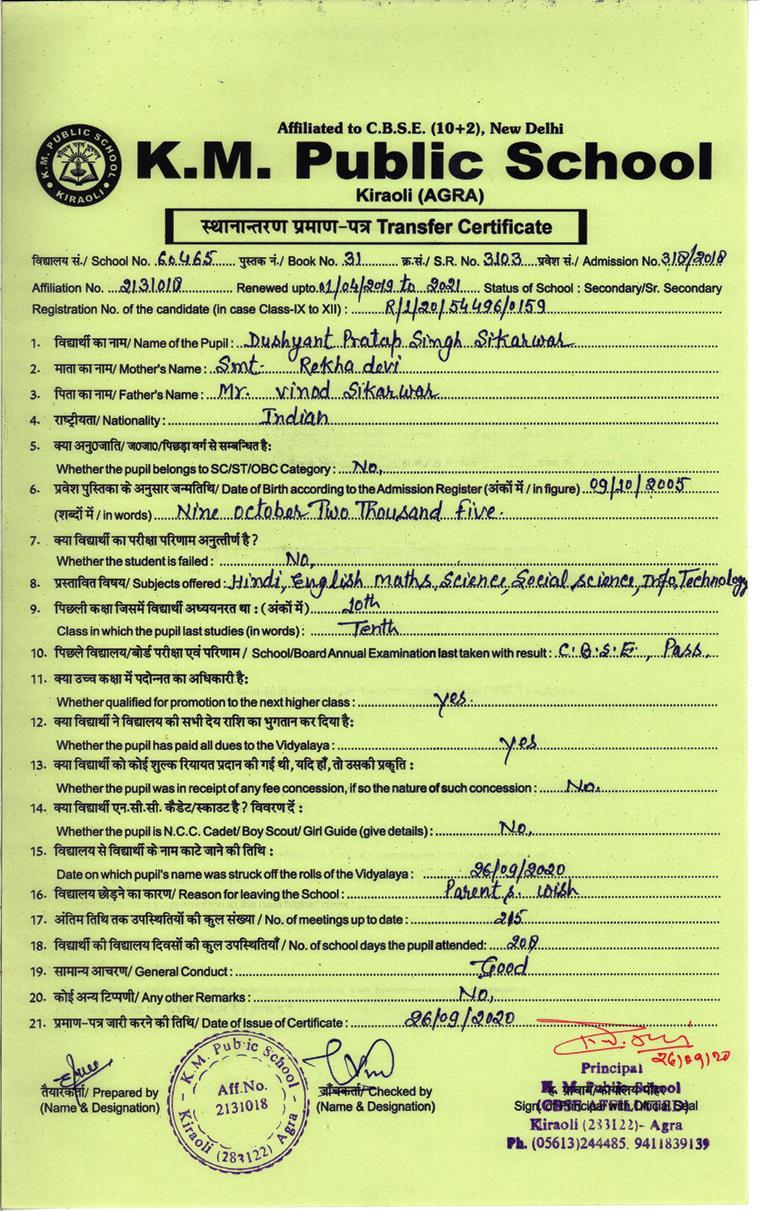 Affiliated to C.B.S.E. (10+2), New Delhi
K.M. PUBLIC SCHOOL
KIRAOLI
K.M. Public School
Kiraoli (AGRA)
स्थानान्तरण प्रमाण-पत्र Transfer Certificate
विद्यालय सं./ School No. 60465 पुस्तक नं./ Book No. 31 क्र.सं./ S.R. No. 3103 प्रवेश सं./ Admission No. 318/2018
Affiliation No. 2131018 Renewed upto. 01/04/2019 to 2021 Status of School : Secondary/Sr. Secondary
Registration No. of the candidate (in case Class-IX to XII) : R/1/20/54496/0159
1. विद्यार्थी का नाम/ Name of the Pupil : Dushyant Pratap Singh Sikarwar
2. माता का नाम/ Mother's Name : Smt. Rekha devi
3. पिता का नाम/ Father's Name : Mr. vinod Sikarwar
4. राष्ट्रीयता/ Nationality : Indian
5. क्या अनु0जाति/ ज0जा0/पिछड़ा वर्ग से सम्बन्धित है:
Whether the pupil belongs to SC/ST/OBC Category : No,
6. प्रवेश पुस्तिका के अनुसार जन्मतिथि/ Date of Birth according to the Admission Register (अंकों में / in figure) 09/10/2005
(शब्दों में / in words) Nine october Two Thousand five.
7. क्या विद्यार्थी का परीक्षा परिणाम अनुत्तीर्ण है ?
Whether the student is failed : No,
8. प्रस्तावित विषय/ Subjects offered : Hindi, English maths, Science, Social science, Info, Technology
9. पिछली कक्षा जिसमें विद्यार्थी अध्ययनरत था : (अंकों में) 10th
Class in which the pupil last studies (in words) : Tenth
10. पिछले विद्यालय/बोर्ड परीक्षा एवं परिणाम / School/Board Annual Examination last taken with result : C.B.S.E, Pass,
11. क्या उच्च कक्षा में पदोन्नत का अधिकारी है:
Whether qualified for promotion to the next higher class : yes.
12. क्या विद्यार्थी ने विद्यालय की सभी देय राशि का भुगतान कर दिया है:
Whether the pupil has paid all dues to the Vidyalaya : yes
13. क्या विद्यार्थी को कोई शुल्क रियायत प्रदान की गई थी, यदि हाँ, तो उसकी प्रकृति :
Whether the pupil was in receipt of any fee concession, if so the nature of such concession : No,
14. क्या विद्यार्थी एन.सी.सी. कैडेट/स्काउट है ? विवरण दें :
Whether the pupil is N.C.C. Cadet/ Boy Scout/ Girl Guide (give details) : No,
15. विद्यालय से विद्यार्थी के नाम काटे जाने की तिथि :
Date on which pupil's name was struck off the rolls of the Vidyalaya : 26/09/2020
16. विद्यालय छोड़ने का कारण/ Reason for leaving the School : Parent s. wish
17. अंतिम तिथि तक उपस्थितियों की कुल संख्या / No. of meetings up to date : 215
18. विद्यार्थी की विद्यालय दिवसों की कुल उपस्थितियाँ / No. of school days the pupil attended: 208
19. सामान्य आचरण/ General Conduct : Good
20. कोई अन्य टिप्पणी/ Any other Remarks : No,
21. प्रमाण-पत्र जारी करने की तिथि/ Date of Issue of Certificate : 26/09/2020
26/09/20
तैयारकर्ता/ Prepared by
(Name & Designation)
K.M. Public School
Aff.No.
2131018
Kiraoli (283122) Agra
जाँचकर्ता/ Checked by
(Name & Designation)
Principal
K. M. Public School
Kiraoli (283122)- Agra
Ph. (05613)244485, 9411839139